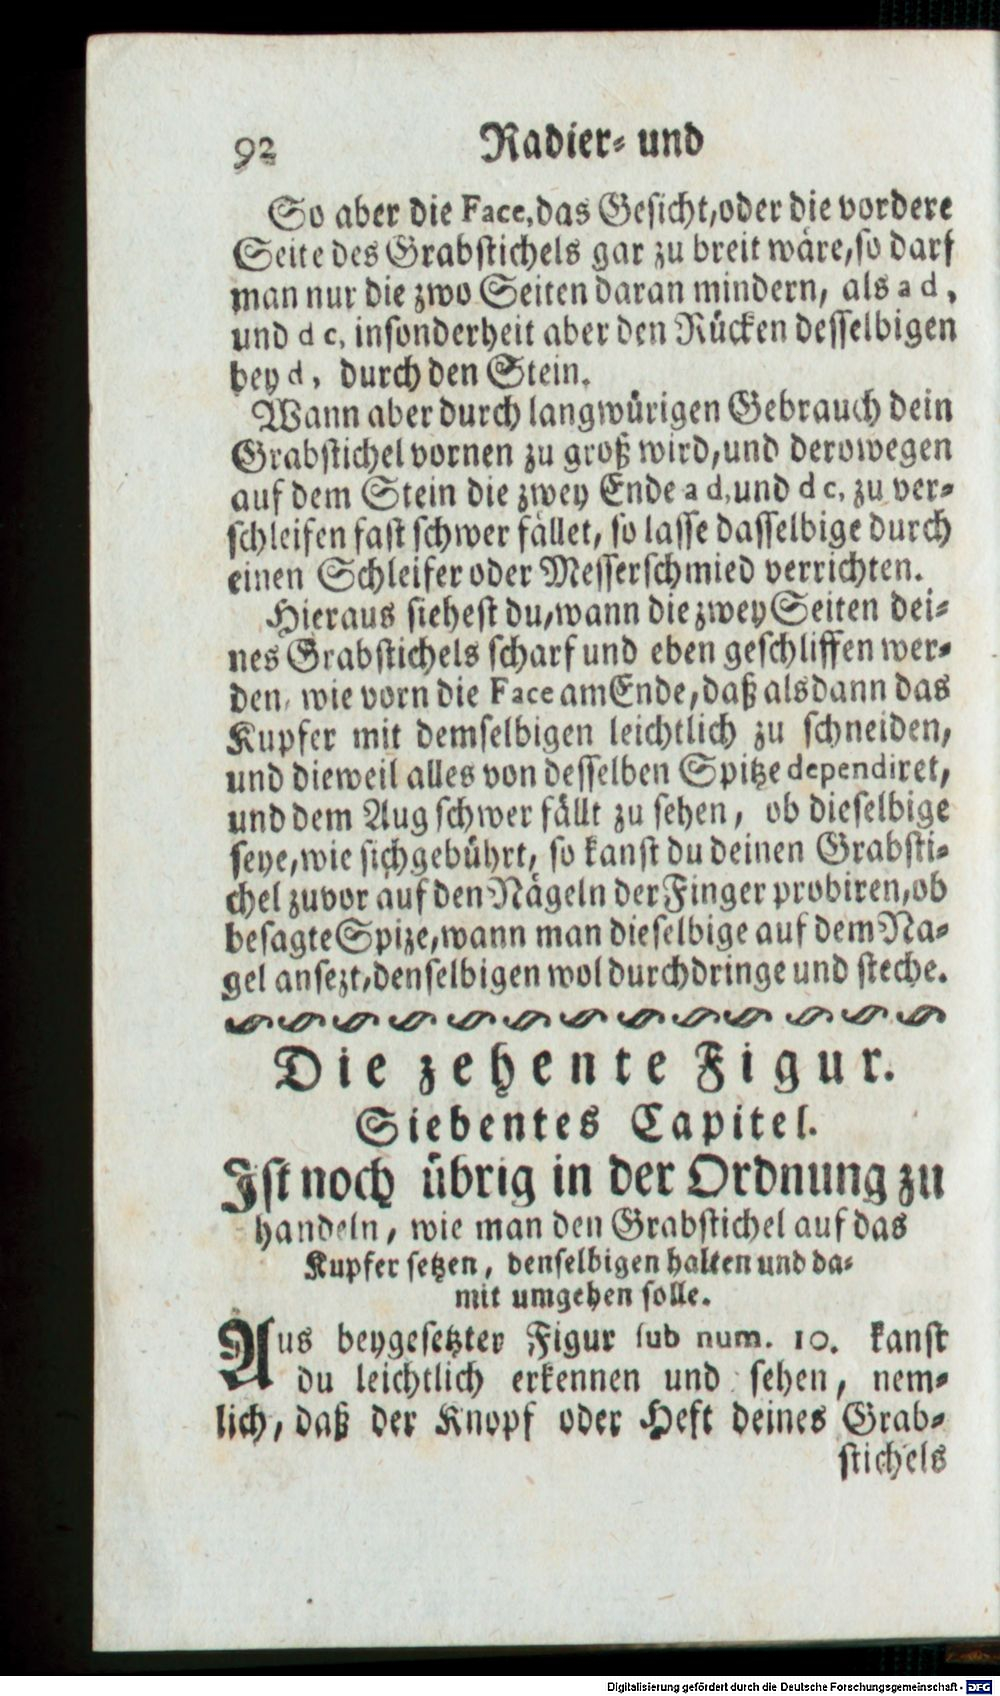 92 Radier- und
So aber die Face, das Gesicht, oder die vordere
Seite des Grabstichels gar zu breit wäre, so darf
man nur die zwo Seiten daran mindern, als a d,
und d c, insonderheit aber den Rücken desselbigen
bey d, durch den Stein.
Wann aber durch langwürigen Gebrauch dein
Grabstichel vornen zu groß wird, und derowegen
auf dem Stein die zwey Ende a d, und d c, zu ver-
schleifen fast schwer fället, so lasse dasselbige durch
einen Schleifer oder Messerschmied verrichten.
Hieraus siehest du, wann die zwey Seiten dei-
nes Grabstichels scharf und eben geschliffen wer-
den, wie vorn die Face am Ende, daß alsdann das
Kupfer mit demselbigen leichtlich zu schneiden,
und dieweil alles von desselben Spitze dependiret,
und dem Aug schwer fällt zu sehen, ob dieselbige
seye, wie sich gebührt, so kanst du deinen Grabsti-
chel zuvor auf den Nägeln der Finger probiren, ob
besagte Spize, wann man dieselbige auf dem Na-
gel ansezt, denselbigen wol durchdringe und steche.
Die zehente Figur.
Siebentes Capitel.
Ist noch übrig in der Ordnung zu
handeln, wie man den Grabstichel auf das
Kupfer setzen, denselbigen halten und da-
mit umgehen solle.
Aus beygesetzter Figur sub num. 10. kanst
du leichtlich erkennen und sehen, nem-
lich, daß der Knopf oder Heft deines Grab-
stichels
Digitalisierung gefördert durch die Deutsche Forschungsgemeinschaft - DFG